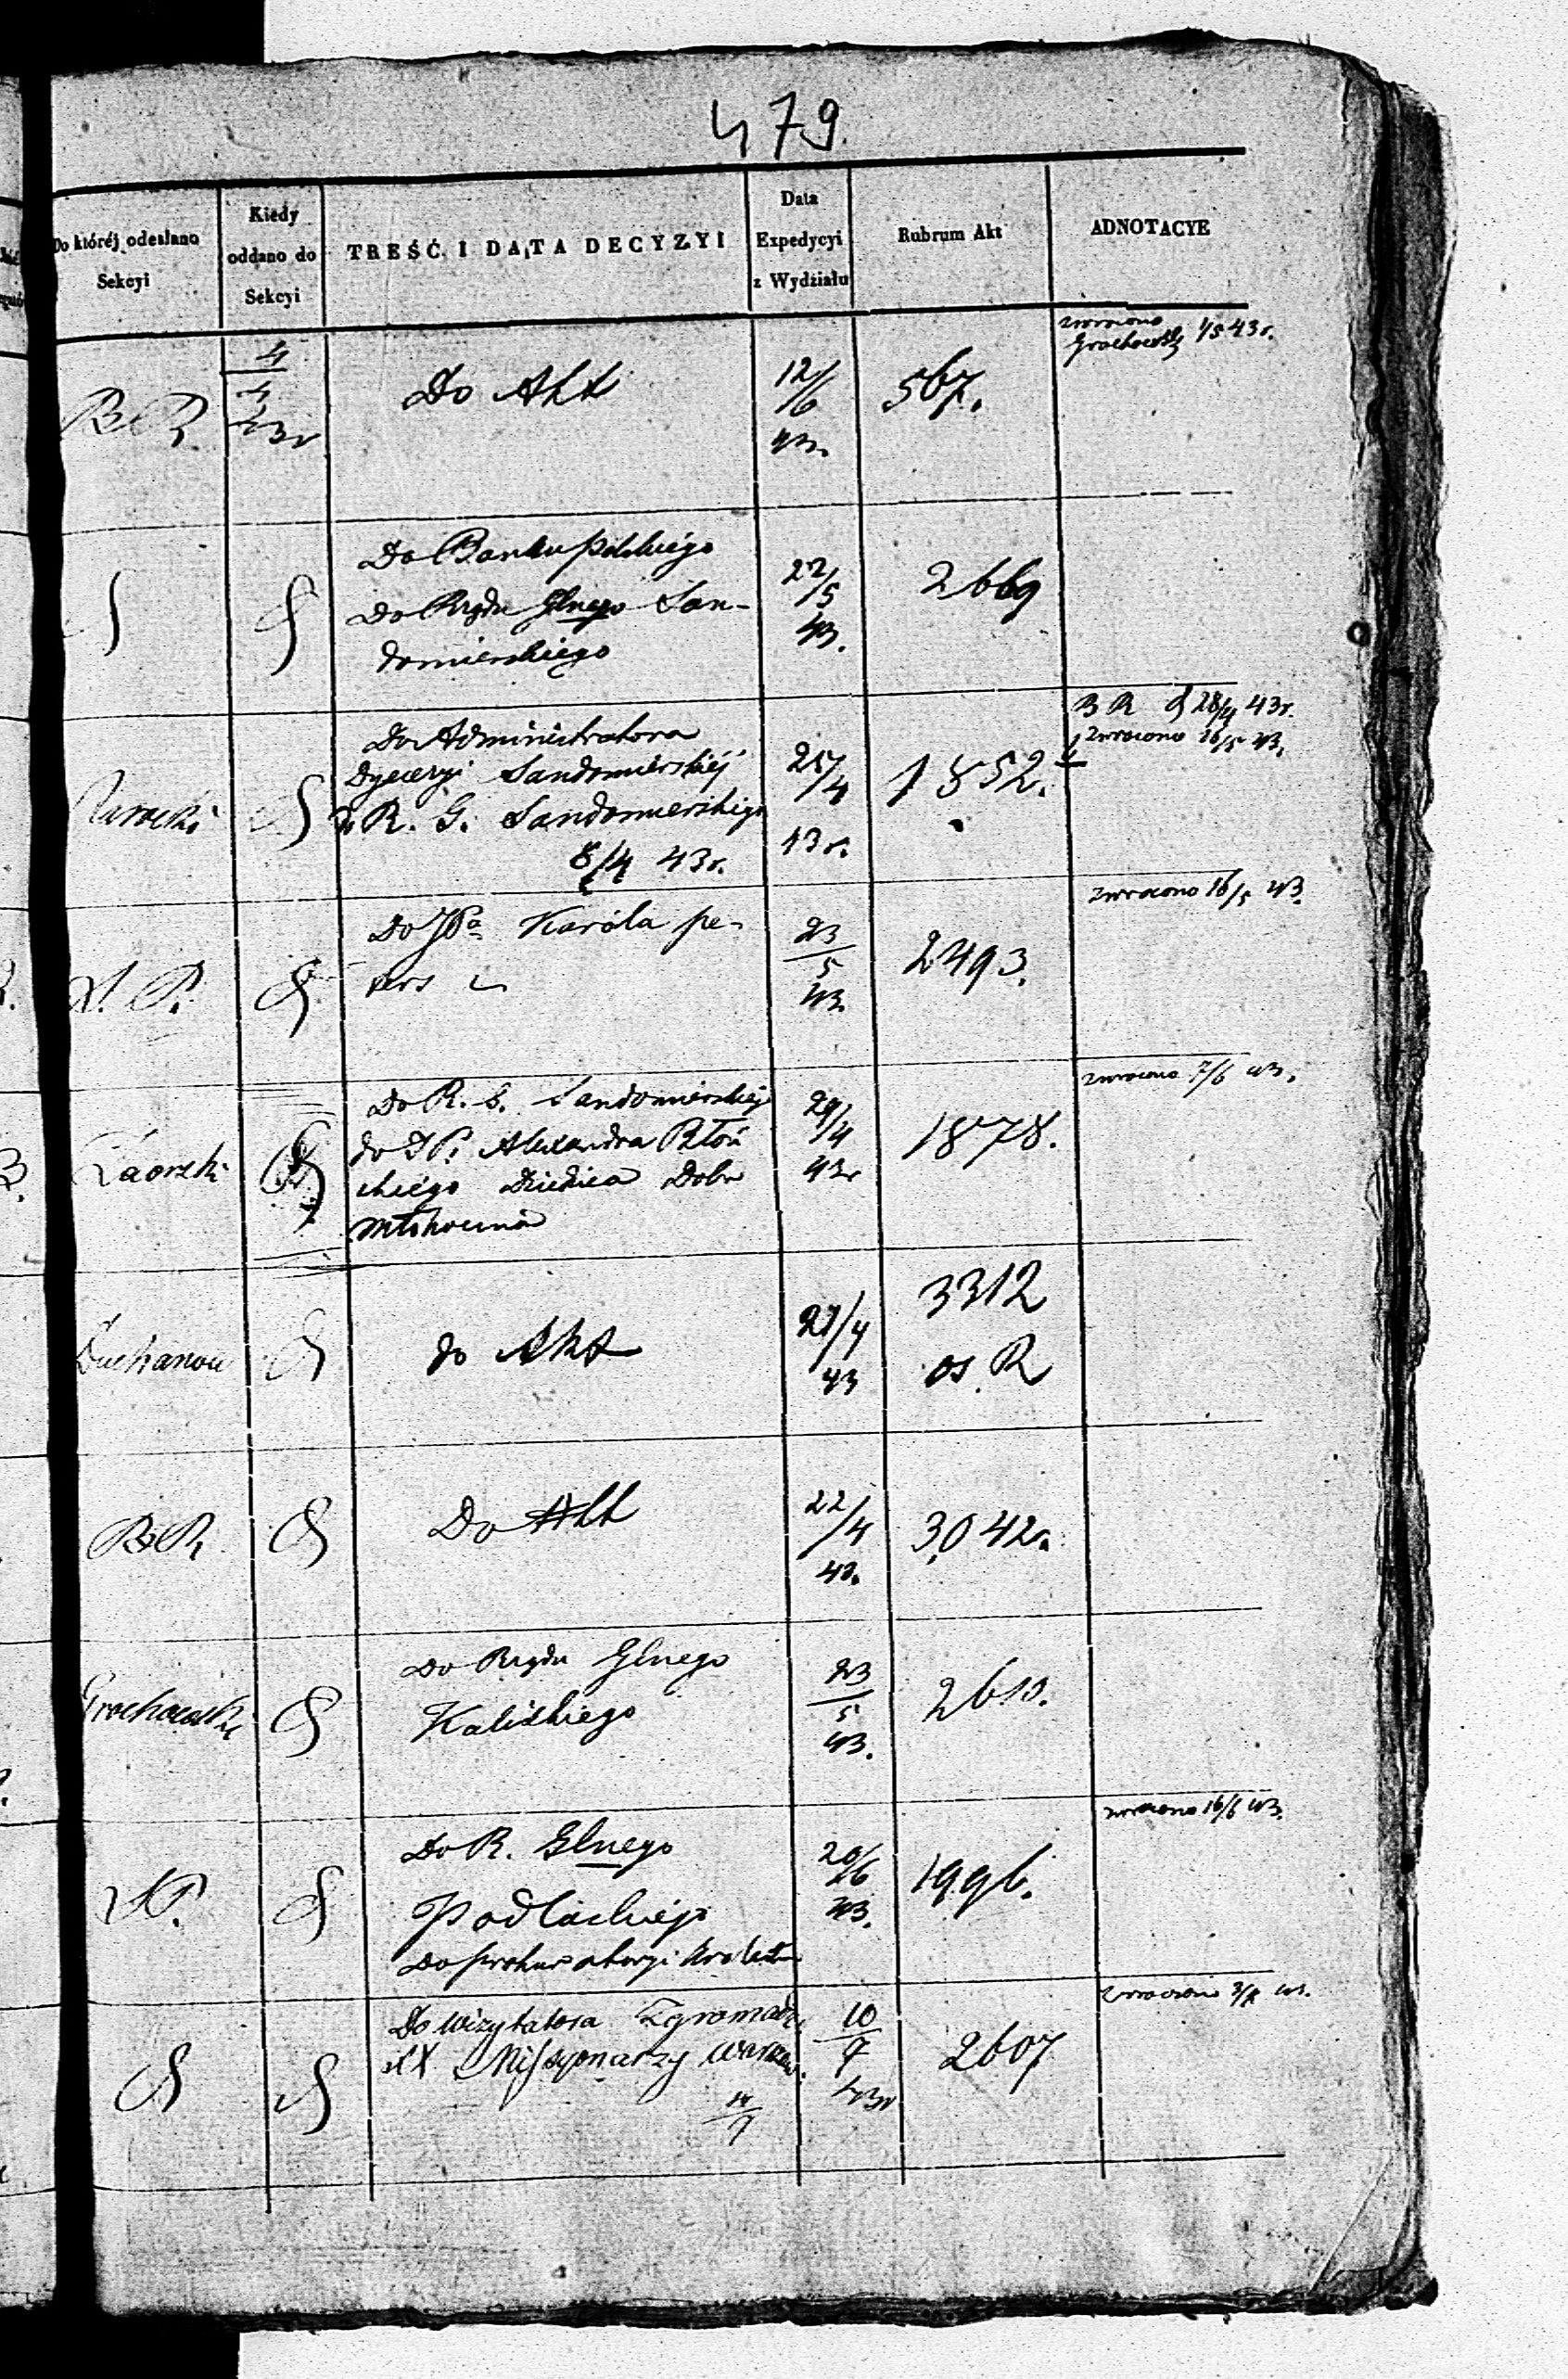 479.
Do któréj odesłano Sekcyi
Kiedy oddano do Sekcyi
TREŚĆ I DATA DECYZYI
Data Expedycyi z Wydziału
Rubrum Akt
ADNOTACYE
BR
4/4 43r
Do Akt
12/6 43.
567.
zwrócono
Grochowski 1/5 43r.
Do Banku polskiego
Do Rządu Glnego San-
domierskiego
22/5 43.
2669
Do Administratora
Dyecezyi Sandomierskiéj
do R. G. Sandomierskiego
8/4 43r.
25/4 43r.
1852.
BR 28/4 43r.
zwrocono 16/5 43.
Do JPa Karóla pe-
ters
23/5 43.
2493.
zwrocono 16/5 43.
Do R. G. Sandomierskiej
do JP. Alexandra
Dziedzica Dobr
29/4 43r
1878.
zwrocono 7/6 43.
do Akt
27/4 43
3312
os. R
BR
Do Akt
22/4 43.
3042.
Grochowski
Do Rządu Glnego
Kaliskiego
23/5 43.
2610.
Do R. Glnego
Podlaskiego
Do prokuratoryi
20/6 43.
1996.
zwrocono 16/6 43.
Do Wizytatora Zgromadz.
XX Missyonarzy Warszaw.
10/7 43r
2607
zwrocono